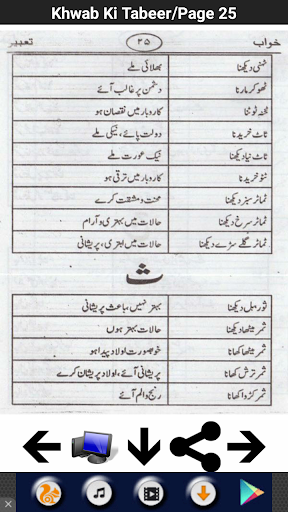 Khwab Ki Tabeer/Page 25
خواب ۲۵ تعبیر
ٹہنی دیکھنا بھلائی ملے
ٹھوکر مارنا دشمن پر غالب آئے
ٹخنہ ٹوٹنا کاروبار میں نقصان ہو
ٹاٹ خریدنا دولت پائے، نیکی ملے
ٹاٹ نیا دیکھنا نیک عورت ملے
ٹٹو خریدنا کاروبار میں ترقی ہو
ٹماٹر سبز دیکھنا محنت و مشقت کرے
ٹماٹر سرخ دیکھنا حالات میں بہتری و آرام
ٹماٹر گلے سڑے دیکھنا حالات میں ابتری، پریشانی
ث
ثور، بیل دیکھنا بہتر نہیں، باعث پریشانی
ثمر میٹھا دیکھنا حالات بہتر ہوں
ثمر میٹھا کھانا خوبصورت اولاد پیدا ہو
ثمر ترش کھانا پریشانی آئے، اولاد پریشان کرے
ثمر کڑوا کھانا رنج و الم آئے